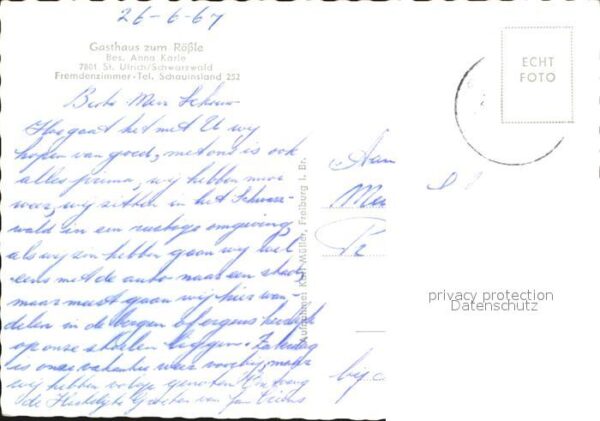 26-6-67
Gasthaus zum Rößle
Bes. Anna Karle
7801 St. Ulrich/Schwarzwald
Fremdenzimmer · Tel. Schauinsland 252
ECHT
FOTO
Beste Mevr
Hoe gaat het met U wy
hopen van goed, met ons is ook
alles prima, wy hebben mooi
weer, wy sitten in het Schwarz-
wald in een rustige omgeving
als wy zin hebben gaan wy wel
eens met de auto naar een stad
maar meest gaan wy hier wan-
delen in de bergen of ergens heerlyk
op onze stoelen liggen. Zaterdag
is onze vakantie weer voorby, maar
wy hebben volop genoten. Ontvang
de Hartelyke Groeten van
Aufnahme: Karl Müller, Freiburg i. Br.
Aan
privacy protection
Datenschutz